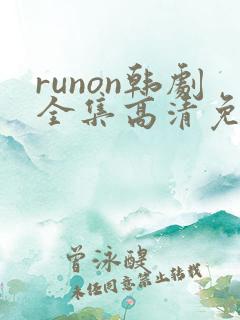 runon韩劇
全集高清免
曾泳醍
未任同意禁止转载